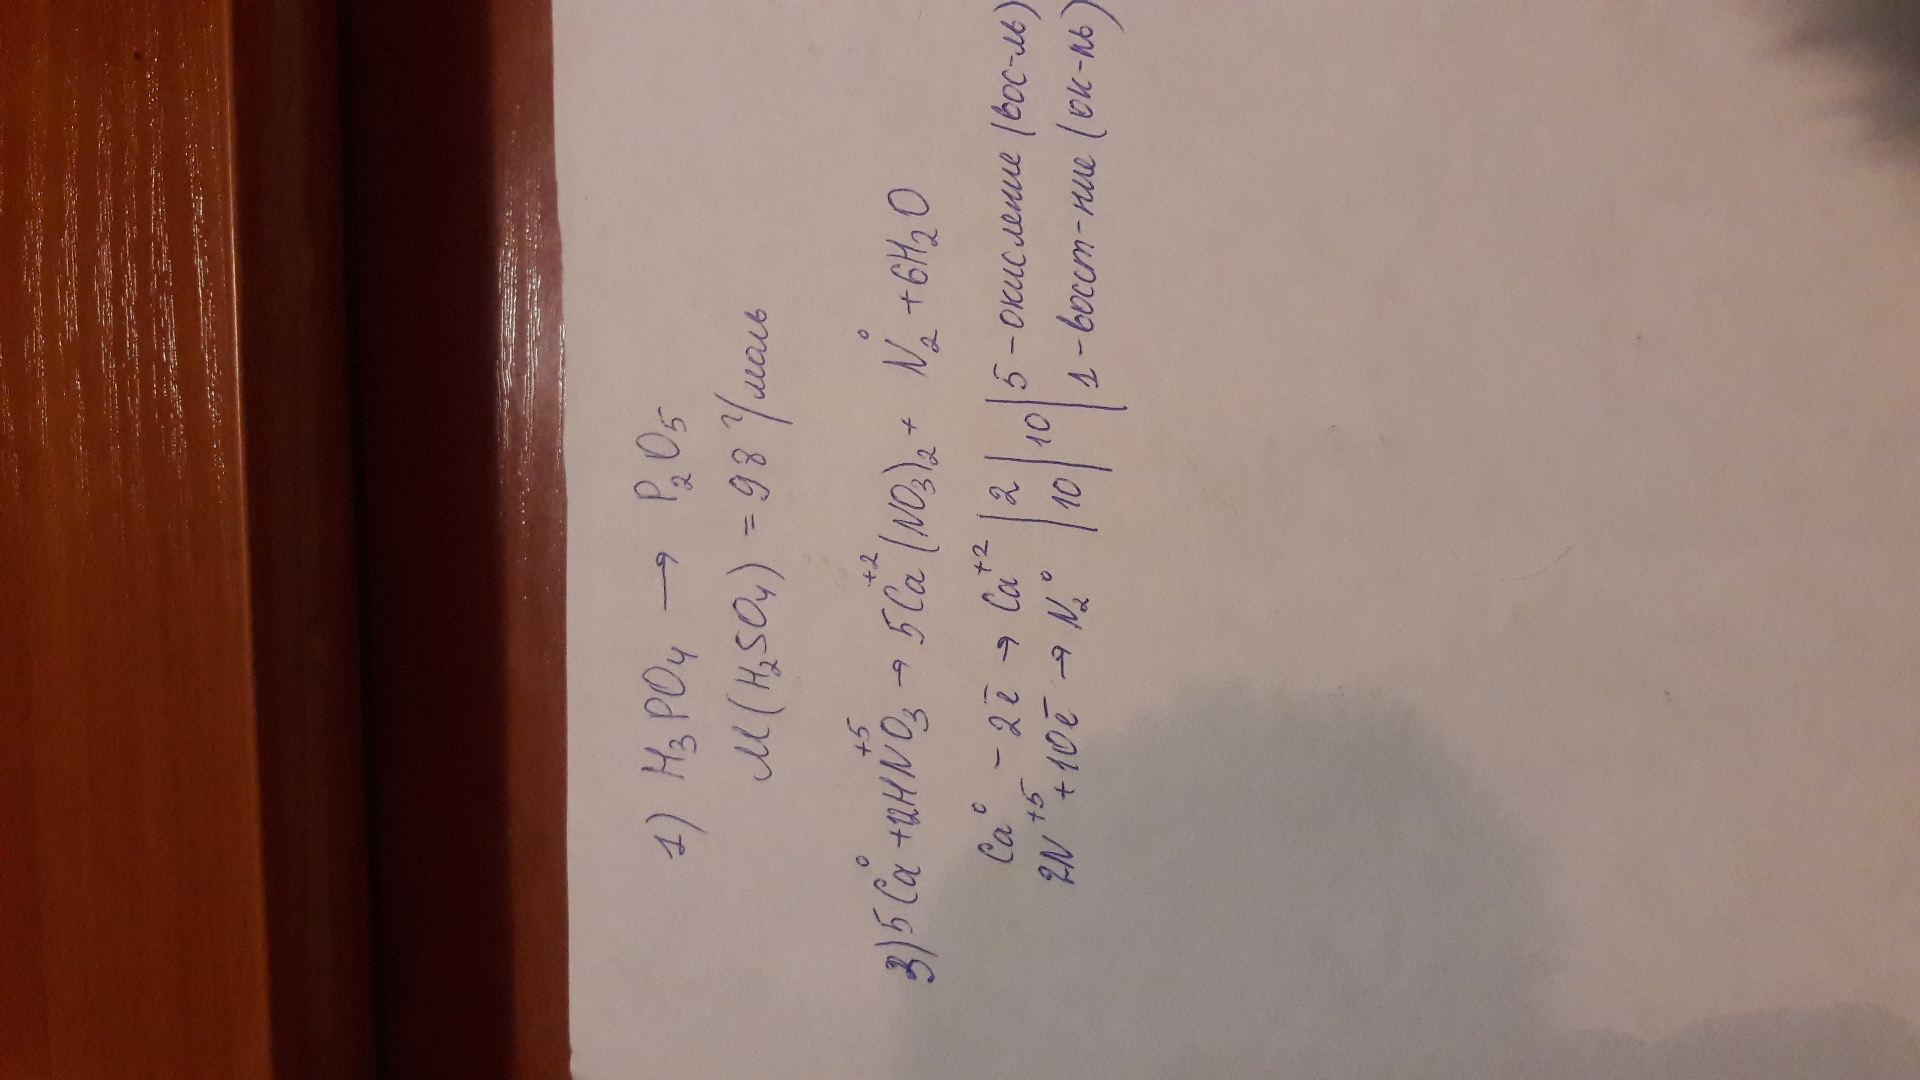 1) H₃PO₄ → P₂O₅
M(H₂SO₄) = 98 г/моль
3) 5Ca⁰ + 12HN⁺⁵O₃ → 5Ca⁺²(NO₃)₂ + N₂⁰ + 6H₂O
Ca⁰ - 2ē → Ca⁺² | 2 | 10 | 5 - окисление (вос-ль)
2N⁺⁵ + 10ē → N₂⁰ | 10 | 1 - восст-ние (ок-ль)